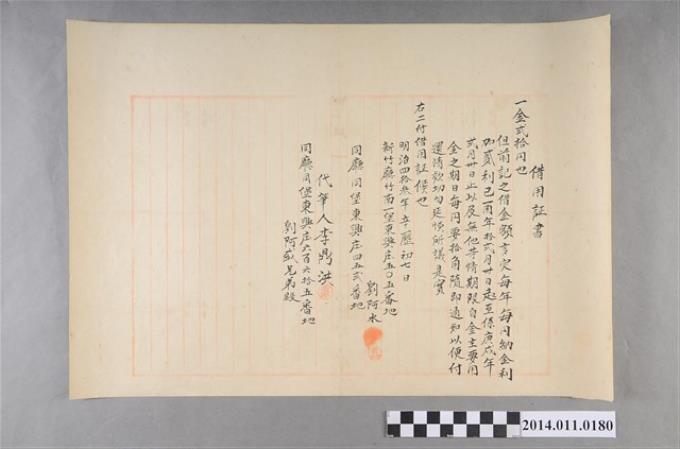 借用証書
一金貳拾円也
但前記之借金額言定每年每円納金利
加貳利己酉年拾貳月廿日起至係庚戌年
貳月廿日止以及無他等情期限自金主要用
金之期日每円要拾角隨即通知以便付
還清款切勿延悞所議是實
右二付借用証候也
明治四拾叁年 初七日
新竹廳竹南一堡東興庄五〇五番地
劉阿水
同廳同堡東興庄四五貳番地
代筆人李鼎洪
同廳同堡東興庄六百六拾五番地
劉阿 兄弟殿
2014.011.0180